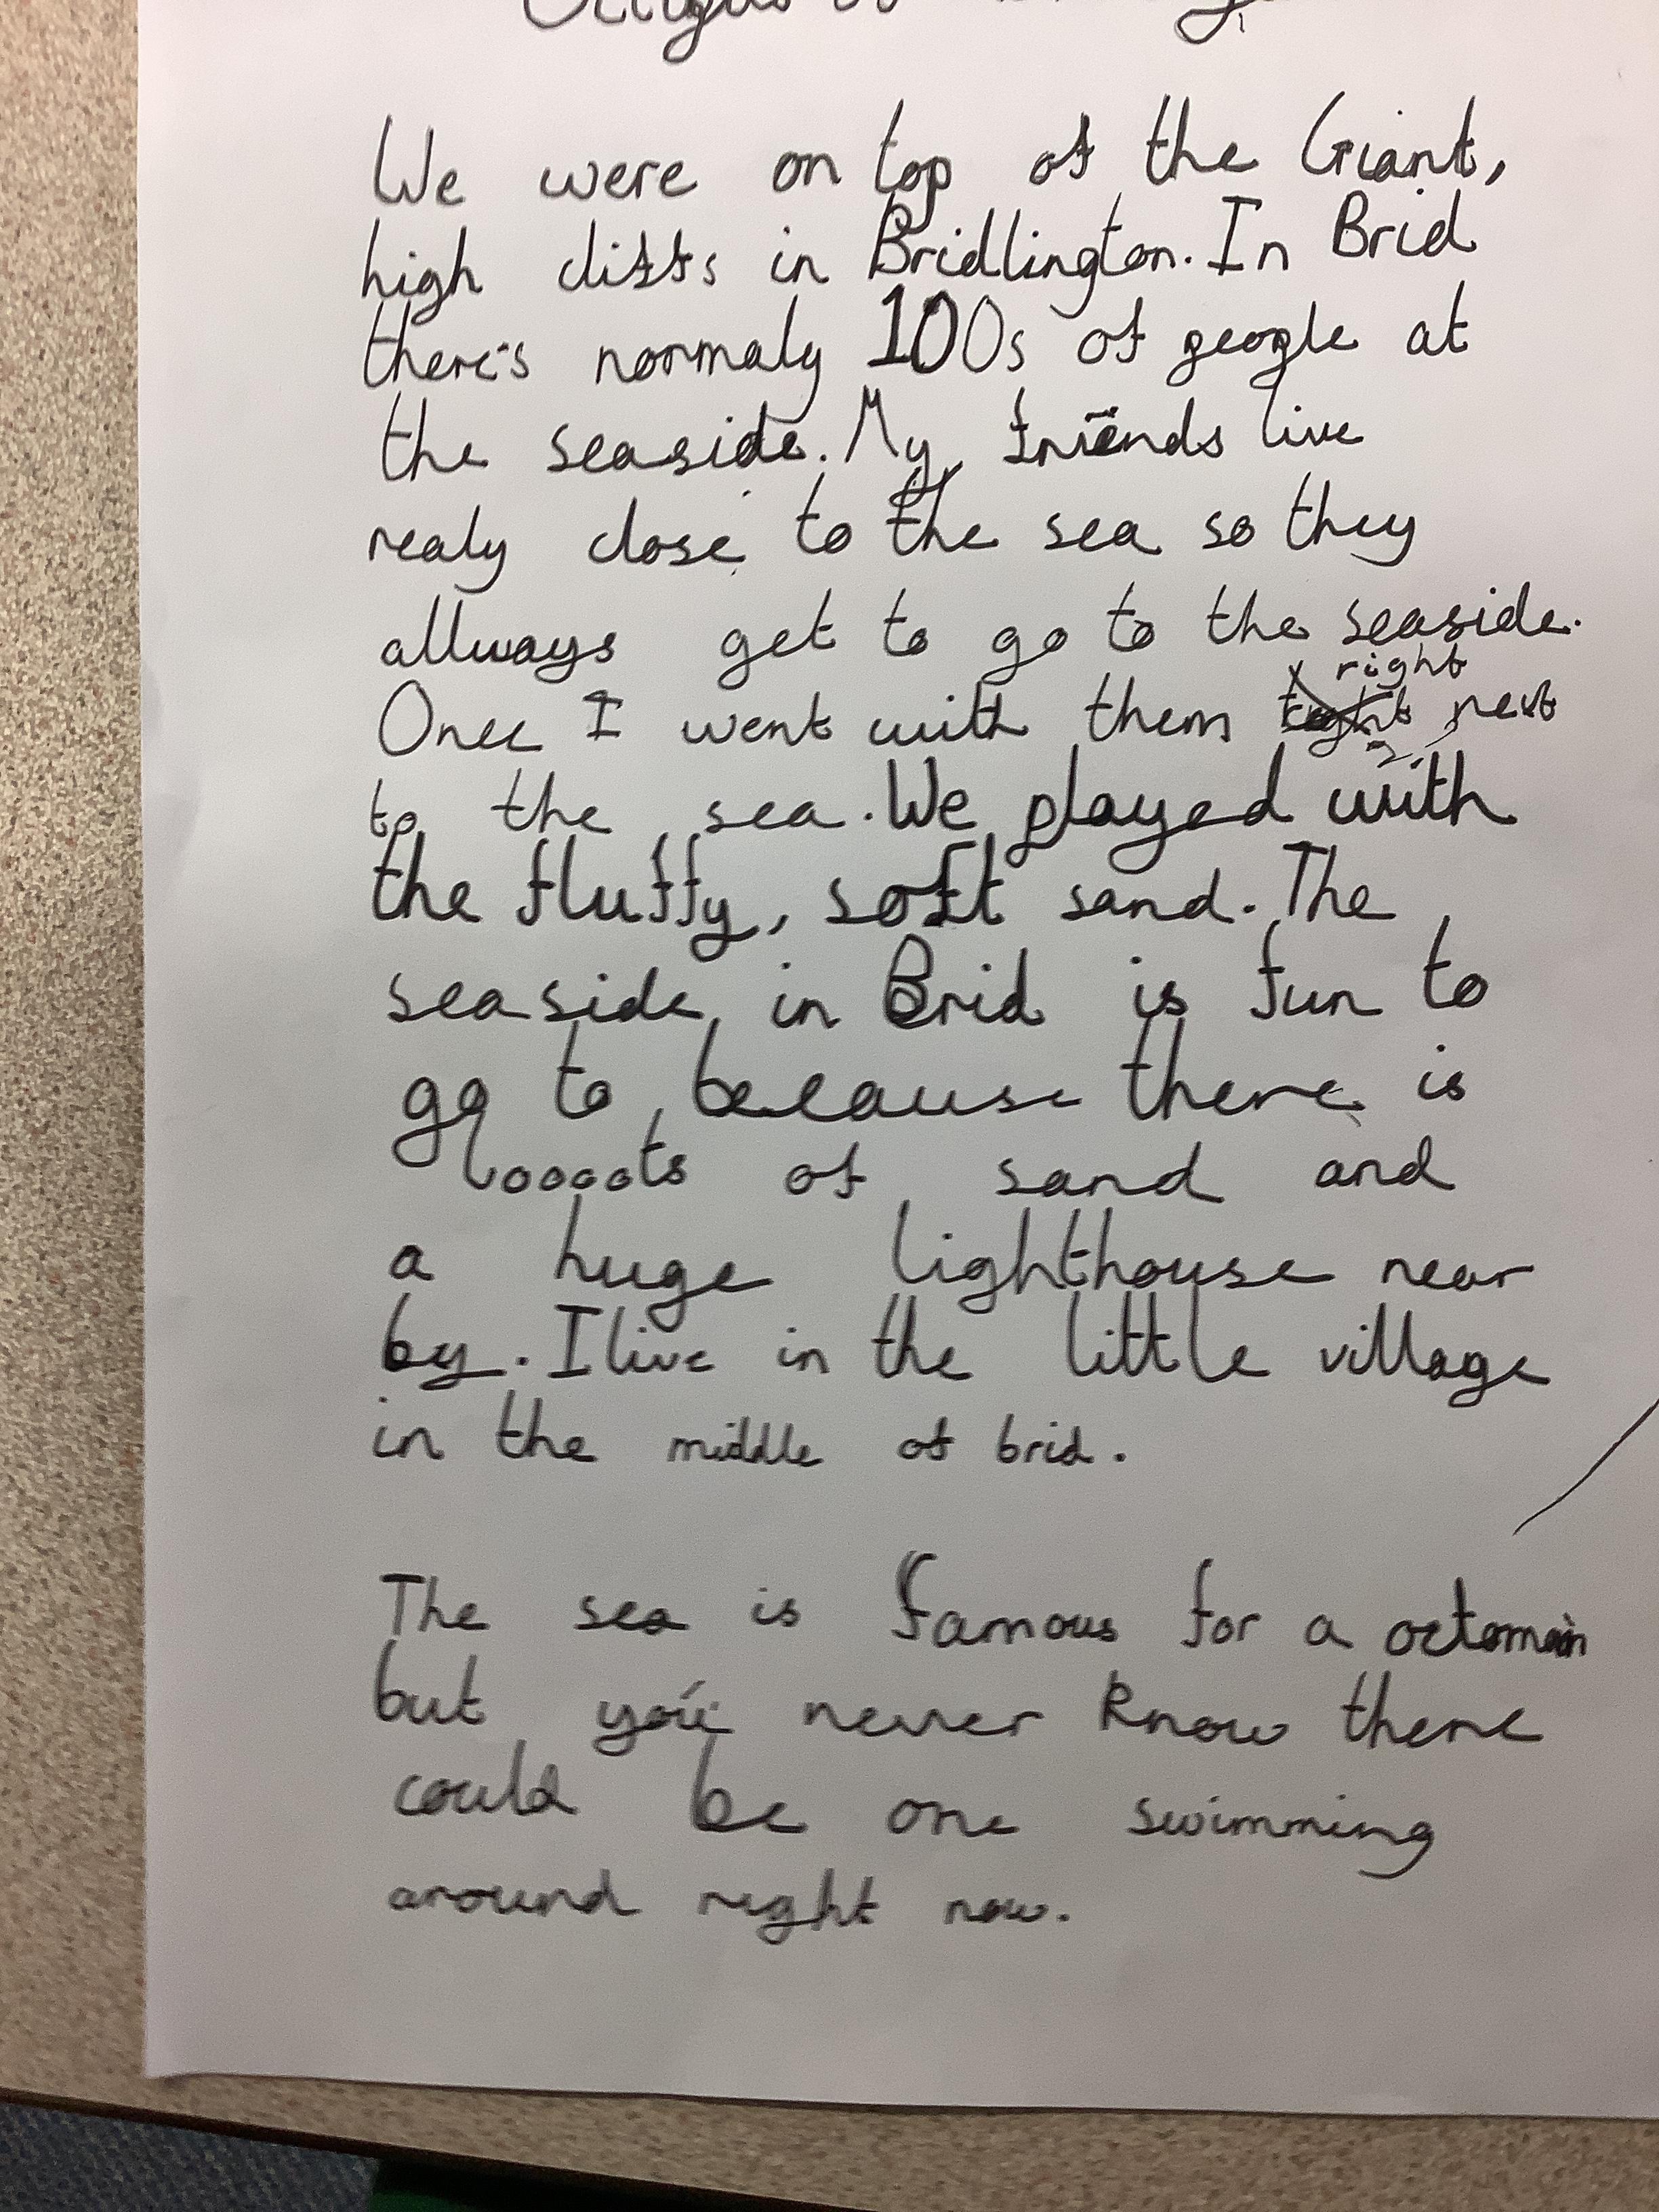 We were on top of the Giant,
high cliffs in Bridlington. In Brid
there's normaly 100s of people at
the seaside. My friends live
realy close to the sea so they
allways get to go to the seaside.
right
Once I went with them next
to the sea. We played with
the fluffy, soft sand. The
seaside in Brid is fun to
go to because there is
loooots of sand and
a huge lighthouse near
by. I live in the little village
in the middle of brid.
The sea is famous for a octoman
but you never know there
could be one swimming
around right now.